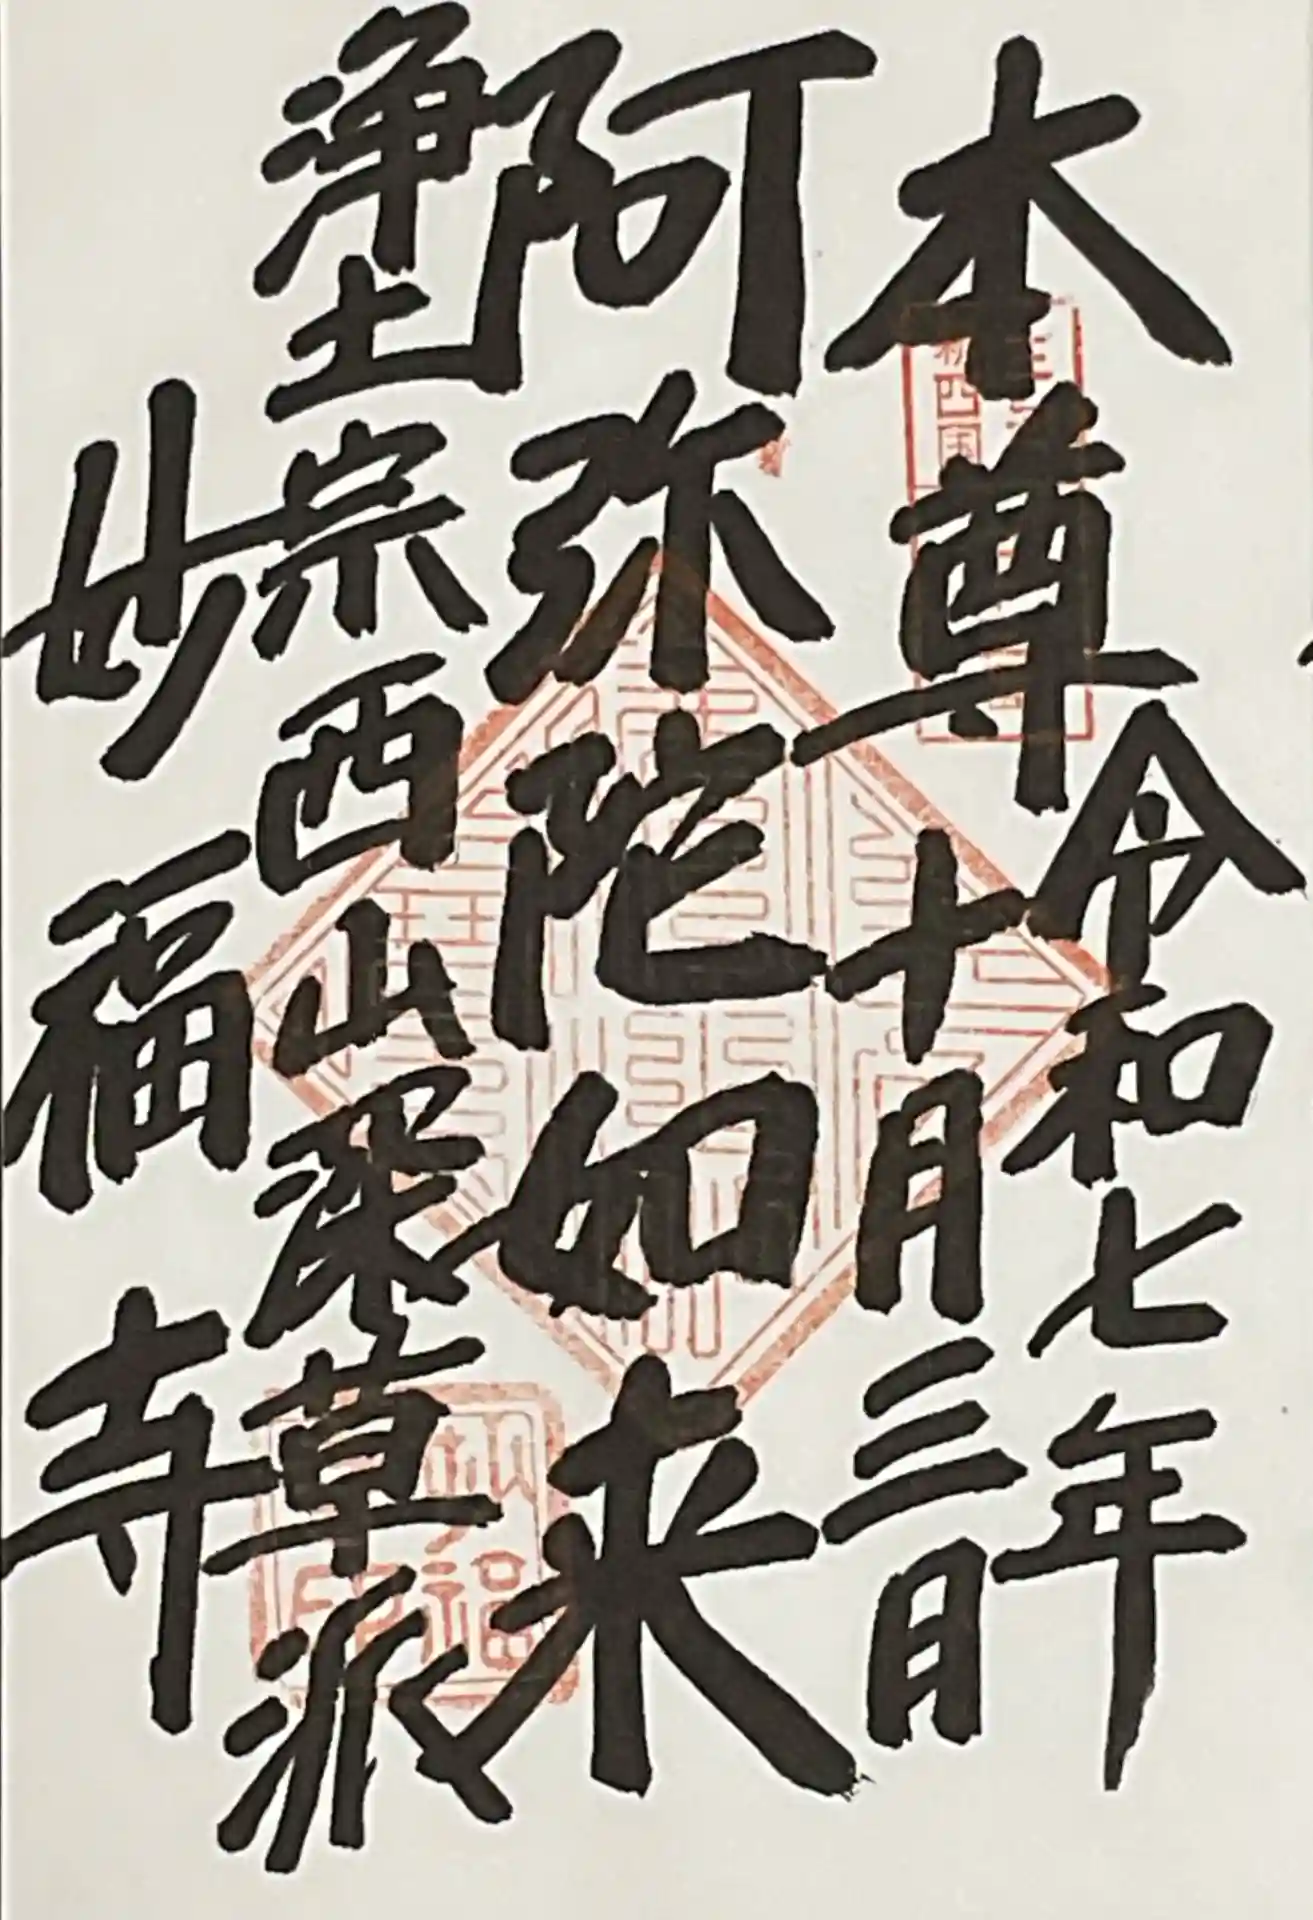 本尊
令和七年
十月三日
阿弥陀如来
浄土宗西山深草派
妙福寺
四国
妙福
印